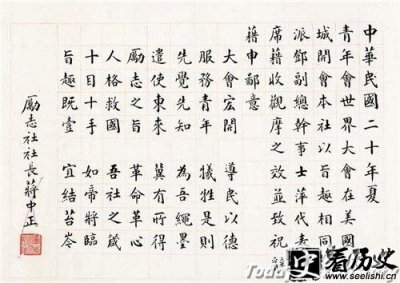 中華民國二十年夏
青年會世界大會在美國
城開會本社以旨趣相同
派鄧副總幹事士萍代表
席藉收觀摩之效並致祝
藉申鄙意
大會宏開 導民以德
服務青年 犧牲是則
先覺先知 為吾繩墨
遣使東來 冀有所得
勵志之旨 革命革心
人格救國 吾社之箴
十目十手 如帝將臨
旨趣既壹 宜結苔岑
勵志社社長蔣中正
看历史
www.seelishi.cn